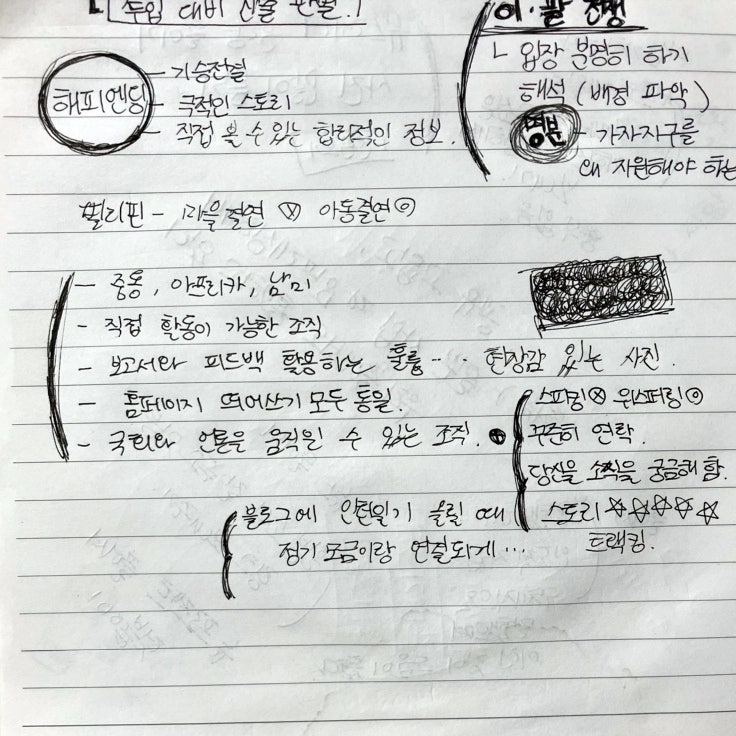 투입 대비 산출 판별.!
해피엔딩
- 기승전결
- 극적인 스토리
- 직접 볼 수 있는 합리적인 정보.
이·팔 전쟁
ㄴ 입장 분명히 하기
해석 (배경 파악)
명분 - 가자지구를
왜 지원해야 하는
필리핀 - 마을결연 ⓧ 아동결연 ⊙
- 중동, 아프리카, 남미
- 직접 활동이 가능한 조직
- 보고서와 피드백 활용하는 훌륭·· 현장감 있는 사진.
- 홈페이지 띄어쓰기 모두 통일.
- 국회와 언론을 움직일 수 있는 조직.
스피킹 ⓧ 위스퍼링 ⊙
꾸준히 연락.
당신을 소식을 궁금해 함.
스토리 ☆☆☆☆☆
트랙킹.
블로그에 인턴일기 올릴 때
정기 모금이랑 연결되게···